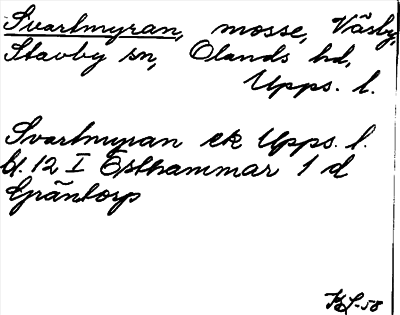 Svartmyran, mosse, Väsby,
Stavby sn, Olands hd,
Upps. l.
Svartmyran ek Upps. l.
bl. 12 I Östhammar 1 d
Gräntorp
KL-58